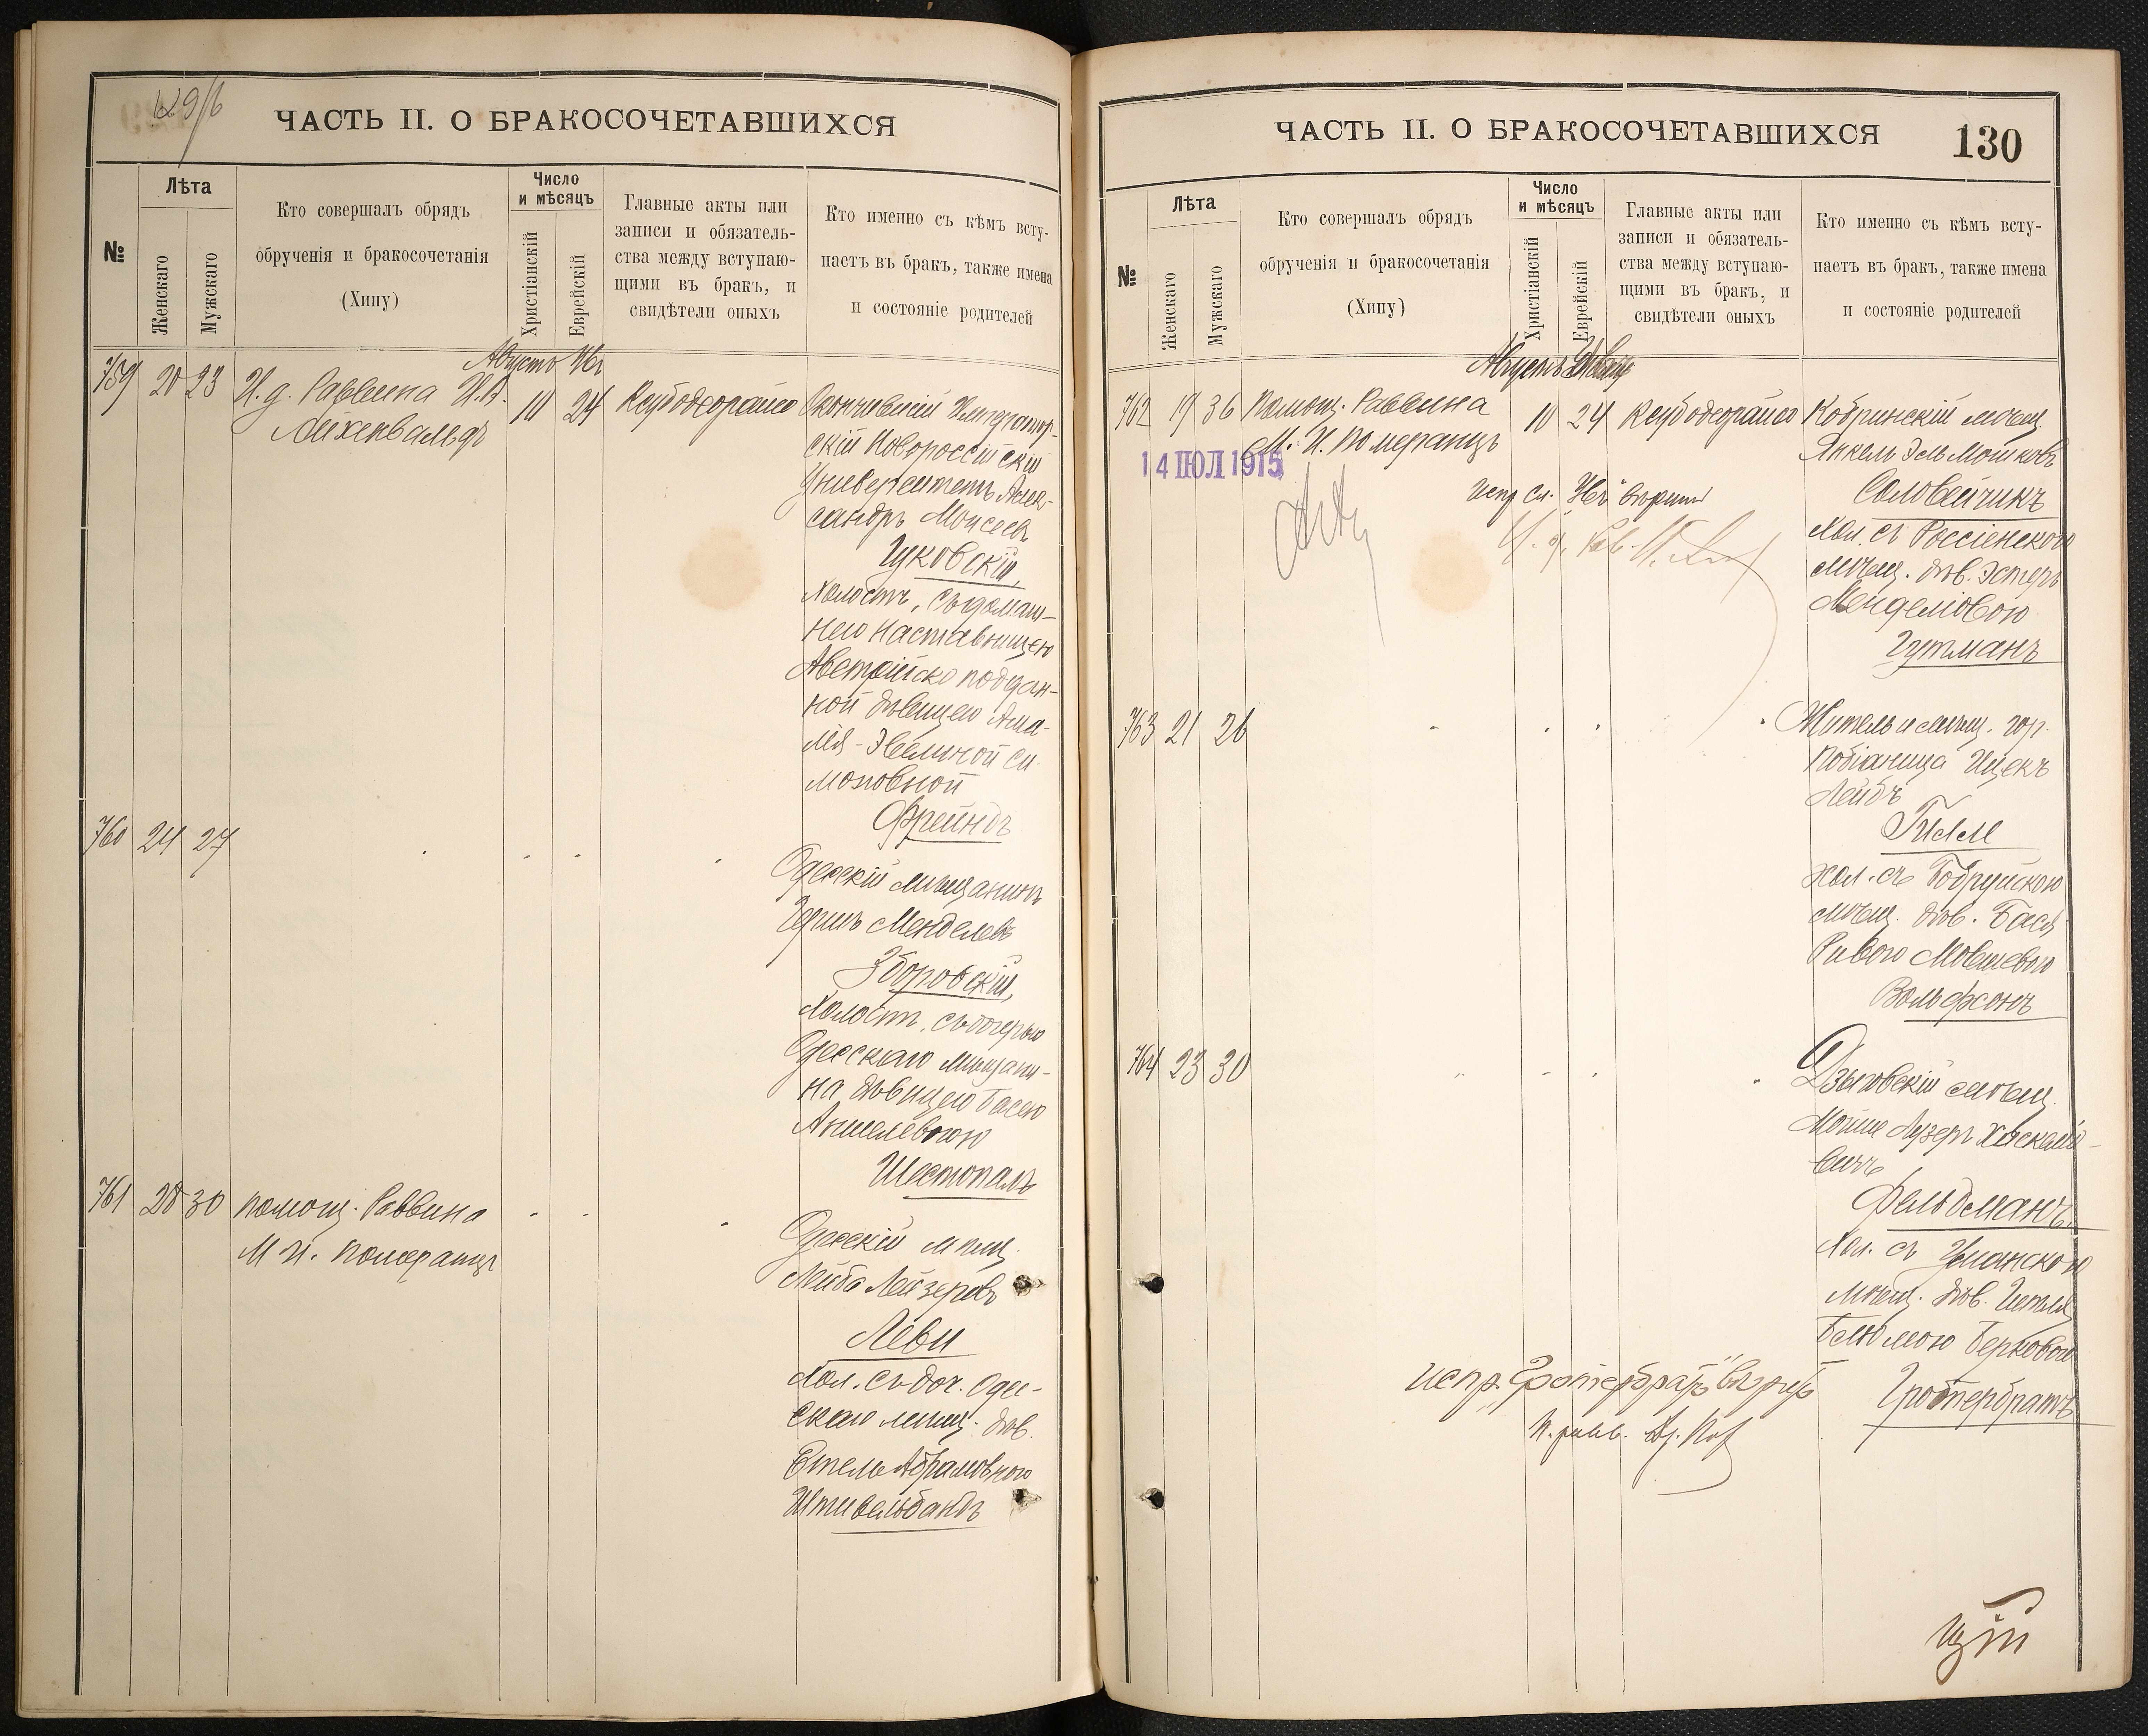 129/б
ЧАСТЬ II. О БРАКОСОЧЕТАВШИХСЯ
№
Лѣта
Женскаго
Мужскаго
Кто совершалъ обрядъ
обрученія и бракосочетанія
(Хипу)
Число
и мѣсяцъ
Христіанскій
Еврейскій
Главные акты или
записи и обязатель-
ства между вступаю-
щими въ бракъ, и
свидѣтели оныхъ
Кто именно съ кѣмъ всту-
паетъ въ бракъ, также имена
и состояніе родителей
Августъ
759 20 23 И.д. Раввина
10 24
Окончившій Император-
скій Новороссійскій
Университетъ Алек-
сандръ Моисеевъ
Цуковскій,
Холостъ, съ домаш-
нею наставницею
Австрійско поддан-
ной дѣвицею Ама-
лія-Эвелиной Си-
моновной
Фрейндъ
760 24 27
Одесскій мѣщанинъ
Гершъ Менделевъ
Зборовскій,
Холостъ, съ дочерью
Одесскаго мѣщани-
на дѣвицею Басею
Аншелевною
Шестопалъ
761 28 30 Помощ. Раввина
М. И. Померанцъ
Одесскій мѣщ.
Лейба Лейзеровъ
Леви
Хол. съ доч. Одес-
скаго мѣщ. дѣв.
Етель Абрамовною
Штивельбандъ
ЧАСТЬ II. О БРАКОСОЧЕТАВШИХСЯ
130
№
Лѣта
Женскаго
Мужскаго
Кто совершалъ обрядъ
обрученія и бракосочетанія
(Хипу)
Число
и мѣсяцъ
Христіанскій
Еврейскій
Главные акты или
записи и обязатель-
ства между вступаю-
щими въ бракъ, и
свидѣтели оныхъ
Кто именно съ кѣмъ всту-
паетъ въ бракъ, также имена
и состояніе родителей
Августъ
762 19 36 Помощ. Раввина
М. И. Померанцъ
10 24
14 ІЮЛ 1915
Кобринскій мѣщ.
Янкель Эль Мошковъ
Соловейчикъ
Хол. съ Россіенскою
мѣщ. дѣв. Эстеръ
Менделовою
Гутманъ
763 21 26
Житель и мѣщ. гор.
Побіаница Ицекъ
Лейбъ
Гилле
хол. съ Бобруйскою
мѣщ. дѣв. Бася
Ривою Мовшевою
Вольфсонъ
764 23 30
мѣщ.
Мойше Лузеръ Хаскеліо-
вичъ
Фельдманъ
Хол. съ Уманскою
мѣщ. дѣв.
Берковою
Гротербратъ
испр. вѣрить